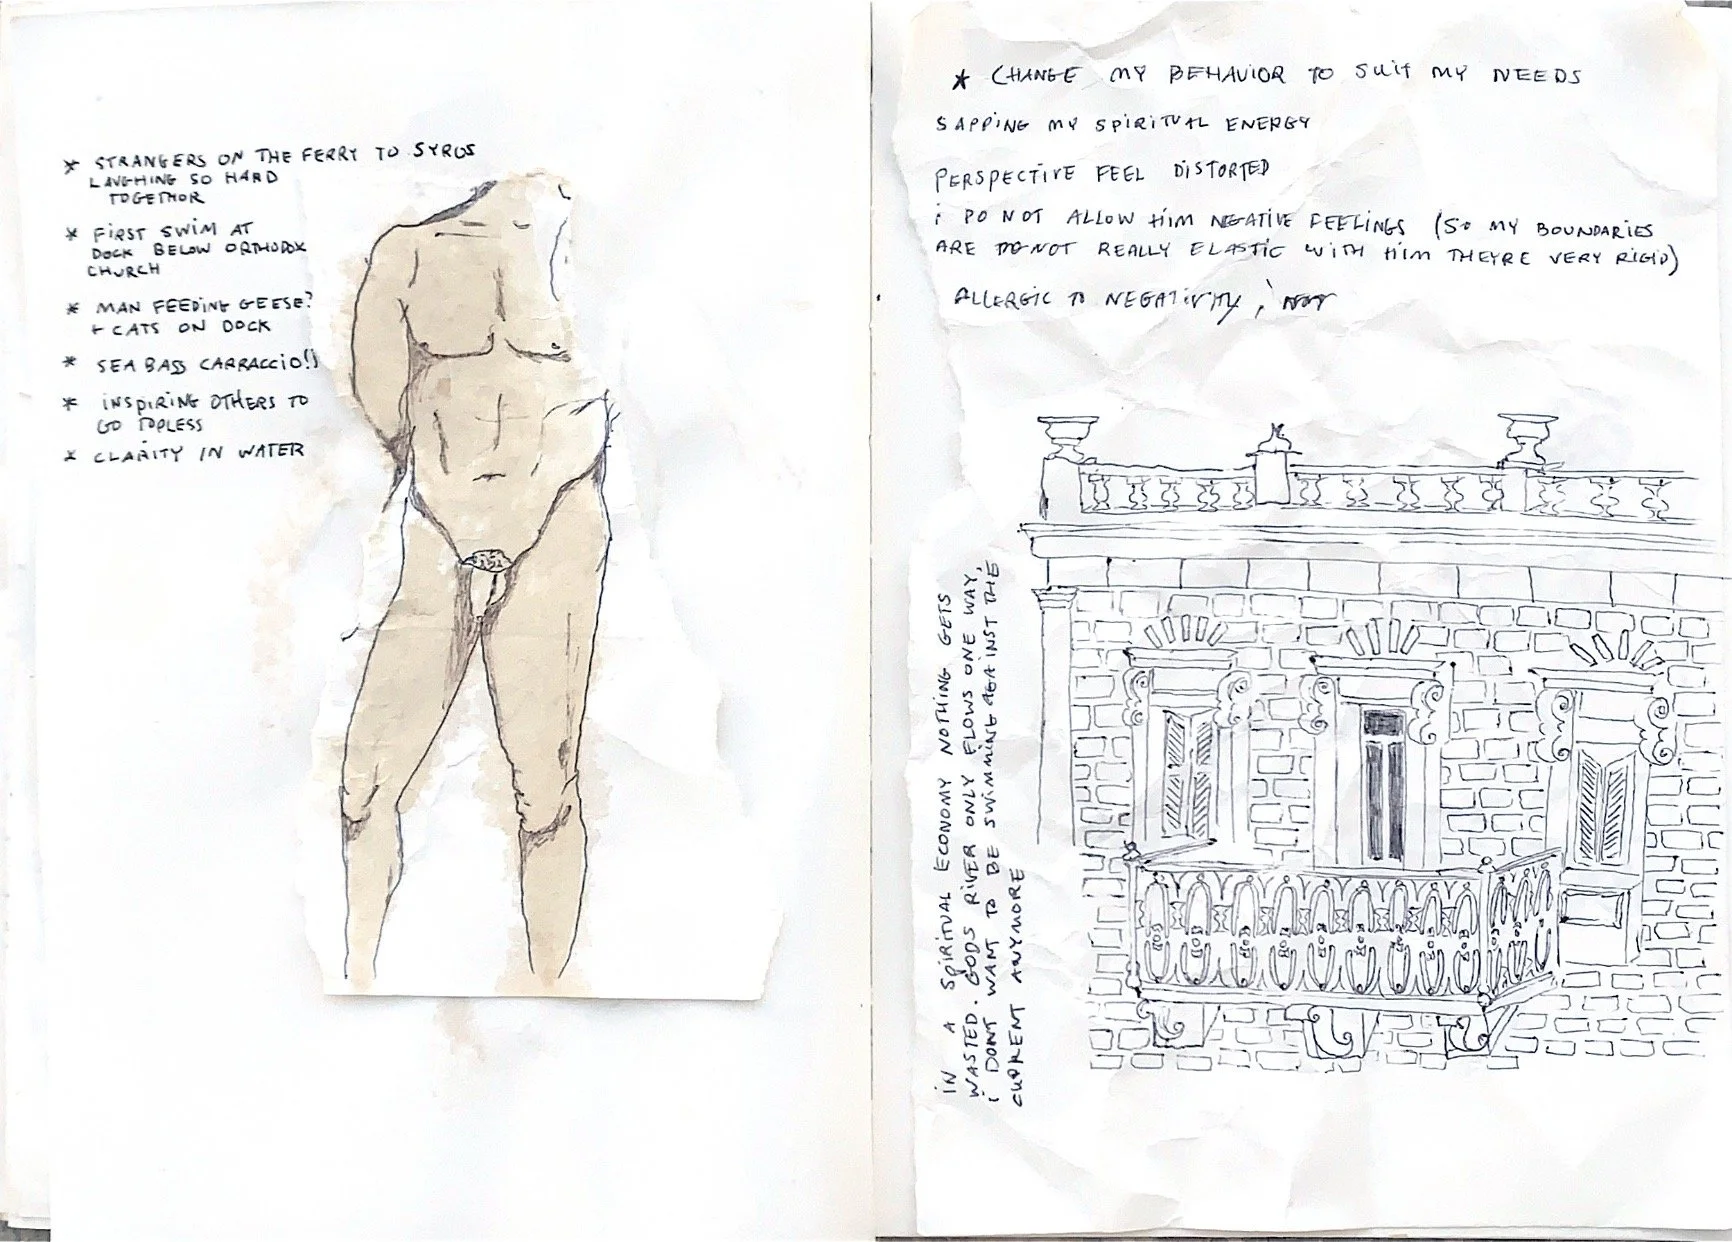 * STRANGERS ON THE FERRY TO SYROS
LAUGHING SO HARD
TOGETHOR
* FIRST SWIM AT
DOCK BELOW ORTHODOX
CHURCH
* MAN FEEDING GEESE?
+ CATS ON DOCK
* SEA BASS CARRACCIO!)
* INSPIRING OTHERS TO
GO TOPLESS
* CLARITY IN WATER
* CHANGE MY BEHAVIOR TO SUIT MY NEEDS
SAPPING MY SPIRITUAL ENERGY
PERSPECTIVE FEEL DISTORTED
i DO NOT ALLOW HIM NEGATIVE FEELINGS (SO MY BOUNDARIES
ARE NOT REALLY ELASTIC WITH HIM THEYRE VERY RIGID)
ALLERGIC TO NEGATIVITY, NOT
IN A SPIRITUAL ECONOMY NOTHING GETS
WASTED. GODS RIVER ONLY FLOWS ONE WAY,
i DONT WANT TO BE SWIMMING AGAINST THE
CURRENT ANYMORE